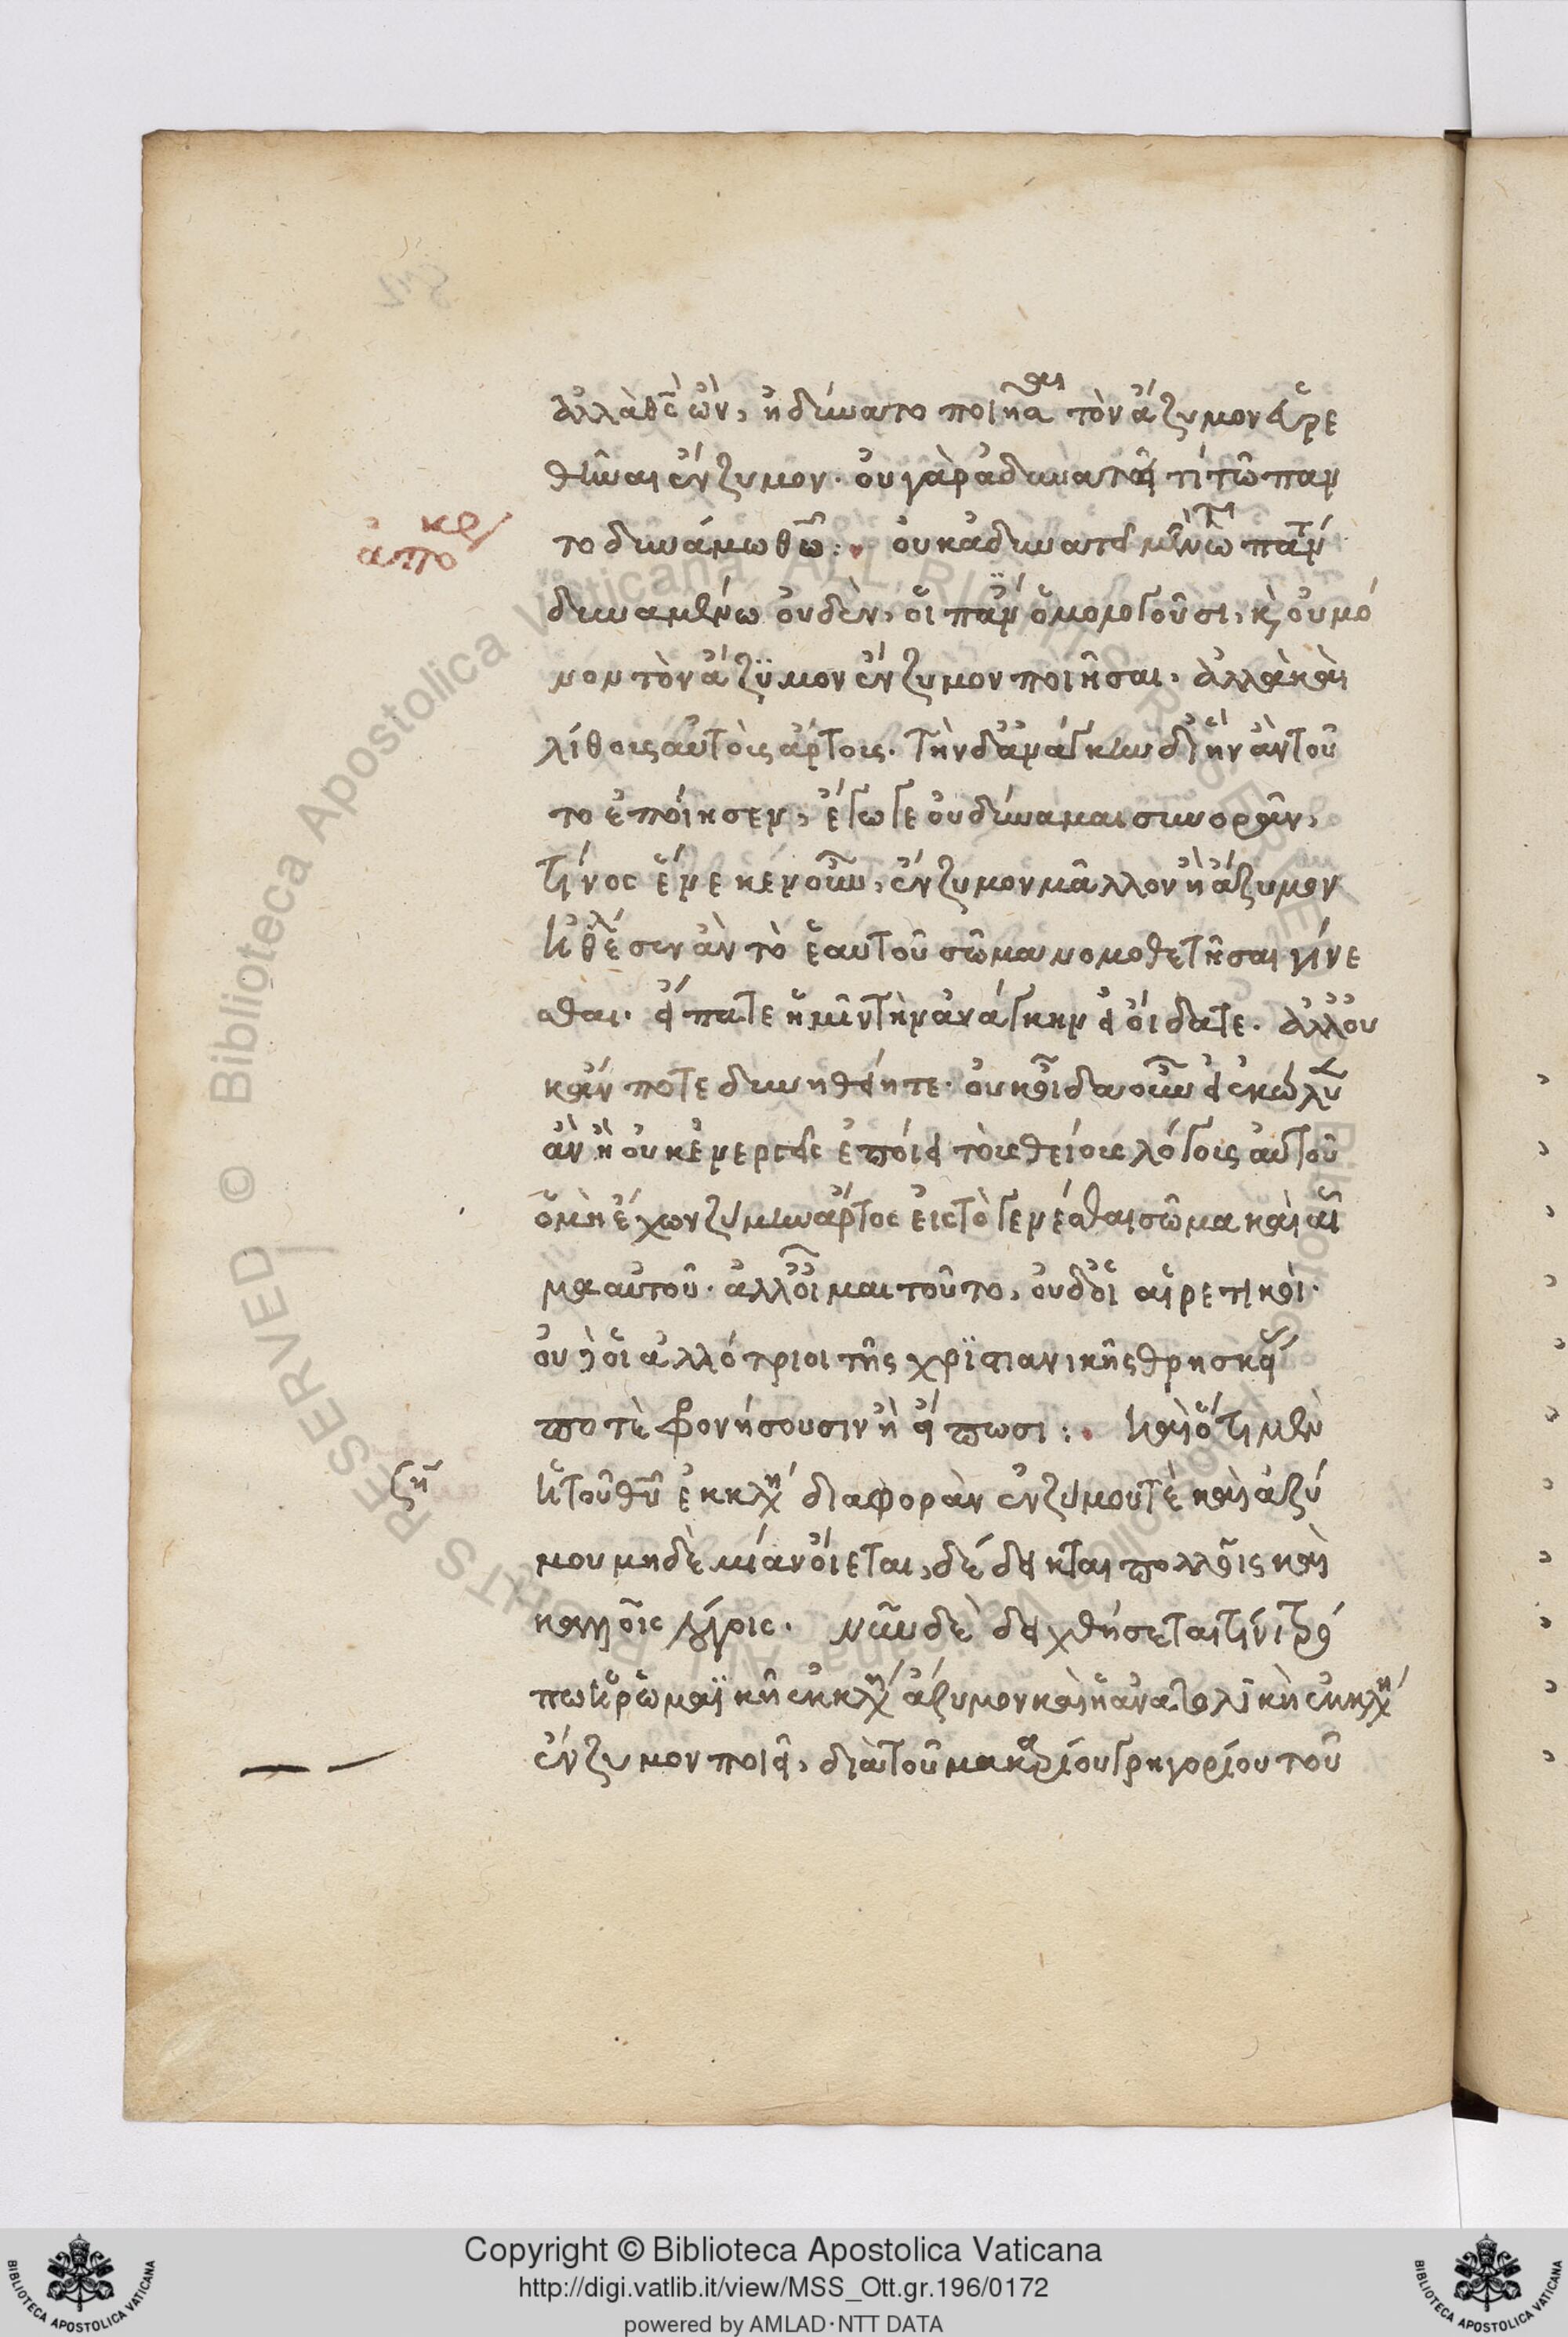 ἀλλὰ θς ὢν, ἠδύνατο ποιῆσαι τὸν ἄζυμον εὑρε
θῆναι ἔνζυμον. οὐ γὰρ ἀδυνατεῖ τί τῶ παν
το δυνάμω θῶ:
ἀποκρ
οὐκ ἀδυνατεῖ μὲν τῶ πάντα
δυναμένω οὐδὲν, οἱ πάντες ὁμολογοῦσι, κ οὐ μό
νον τὸν ἄζυμον ἔνζυμον ποιῆσαι. ἀλλὰ καὶ
λίθοις αὐτοῖς ἄρτοις. τὴν δ ἀνάγκην δι ἣν ἂν τοῦ
το ἐποίησεν, ἔγωγε οὐ δύναμαι συνορᾶν,
τίνος ἕνεκεν οὖν, ἔνζυμον μᾶλλον ἢ ἄζυμον
ἠθέλησεν ἂν τὸ ἑαυτοῦ σῶμα νομοθετῆσαι γίνε
σθαι. εἴπατε ἡμῖν τὴν ἀνάγκην εἰ οἴδατε. ἀλλ οὐ
κ ἄν ποτε δυνηθείητε. οὐκ οἶδα οὖν εἰ ἐκώλυ
ἂν ἢ οὐκ ἐνεργεῖς ἐποίει τοῖς θείοις λόγοις αὐτοῦ
ὁ μὴ ἔχων ζύμην ἄρτος εἰς τὸ γενέσθαι σῶμα καὶ αἷ
μα αὐτοῦ. ἀλλ οἶμαι τοῦτο, οὐδ οἱ αἱρετικοὶ.
οὐδ οἱ ἀλλότριοι τῆς χριστιανικῆς θρησκείας
ποτὲ φρονήσουσιν ἢ εἴπωσι: καὶ ὅτι μὲν
ζη
ἡ τοῦ θυ ἐκκλη διαφορὰν ἐνζύμου τὲ καὶ ἀζύ
μου μηδὲ μίαν οἴεται, δέδεικται πολλοῖς καὶ
καλοῖς λόγοις. νῦν δὲ δειχθήσεται τίνι τρό
πω ἡ ῥωμαϊκὴ ἐκκλη ἄζυμον καὶ ἡ ἀνατολικὴ ἐκκλη
ἔνζυμον ποιεῖ, διὰ τοῦ μακαρίου γρηγορίου τοῦ
Copyright © Biblioteca Apostolica Vaticana
http://digi.vatlib.it/view/MSS_Ott.gr.196/0172
powered by AMLAD·NTT DATA